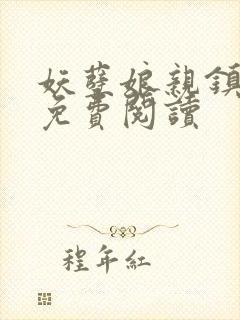 妖孽娘親鎮
免費閱讀
程年紅